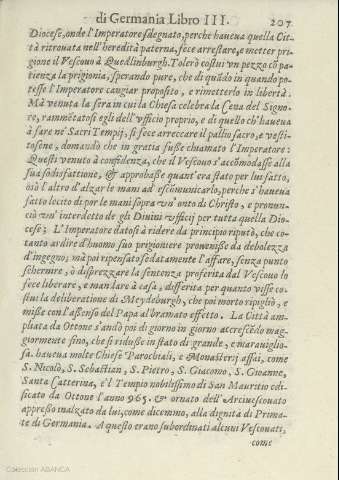 di Germania Libro III. 207
Diocese, onde l'Imperatore sdegnato, perche haueua quella Cit-
tà ritrouata nell'heredità paterna, fece arrestare, et metter pri-
gione il Vescouo à Quedlinburgh. Tolerò costui vn pezzo cō pa-
tienza la prigionia, sperando pure, che di quādo in quando po-
tesse l'Imperatore cangiar proposito, e rimetterlo in libertà.
Mà venuta la sera in cui la Chiesa celebra la Cena del Signo-
re, rammētatosi egli dell'vfficio proprio, e di quello ch'haueua
à fare ne' Sacri Tempij, si fece arreccare il pallio sacro, e vesti-
tosene, domandò che in gratia fusse chiamato l'Imperatore:
Questi venuto à confidenza, che il Vescouo s'accōmodasse alla
sua sodisfattione, & approbasse quant'era stato per lui fatto,
osò l'altro d'alzar le mani ad escōmunicarlo, perche s'haueua
fatto lecito di por le mani sopra vn' onto di Christo, e pronun-
ciò vn' interdetto de gli Diuini vfficij per tutta quella Dio-
cese; L'Imperatore datosi à ridere da principio riputò, che co-
tanto ardire d'huomo suo prigioniere proueniße da debolezza
d'ingegno; mà poi ripensato sodatamente l'affare, senza punto
schernire, ò disprezzare la sentenza proferita dal Vescouo lo
fece liberare, e mandare à casa; differita per quanto visse co-
stui la deliberatione di Meydeburgh, che poi morto ripigliò, e
miße con l'aßenso del Papa al bramato effetto. La Città am-
pliata da Ottone s'andò poi di giorno in giorno accrescēdo mag-
giormente sino, che si riduße in stato di grande, e marauiglio-
sa. haueua molte Chiese Parochiali, e Monasterij assai, come
S. Nicolò, S. Sebastian, S. Pietro, S. Giacomo, S. Giouanne,
Santa Catterina, e'l Tempio nobilissimo di San Mauritio edi-
ficato da Ottone l'anno 965. & ornato dell'Arciuescouato
appreßo inalzato da lui, come dicemmo, alla dignità di Prima-
te di Germania. A questo erano subordinati alcuni Vescouati,
come
Colección ABANCA